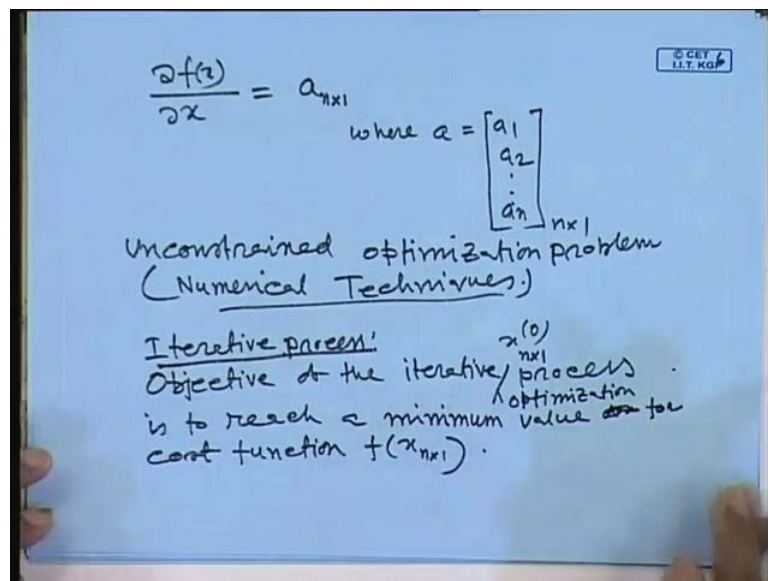 © CET
I.I.T. KGP
∂f(x)/∂x = a_{n×1}
where a = [a1 a2 . . an]_{n×1}
Unconstrained optimization problem
(Numerical Techniques.)
Iterative process:
x^(0)_{n×1}
Objective of the iterative / process .
optimization
is to reach a minimum value for
cost function f(x_{n×1}) .